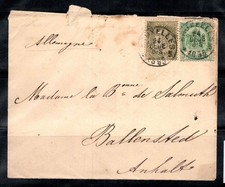 Allemagne
Madame la Bonne de Salmuth
Ballenstedt
Anhalt